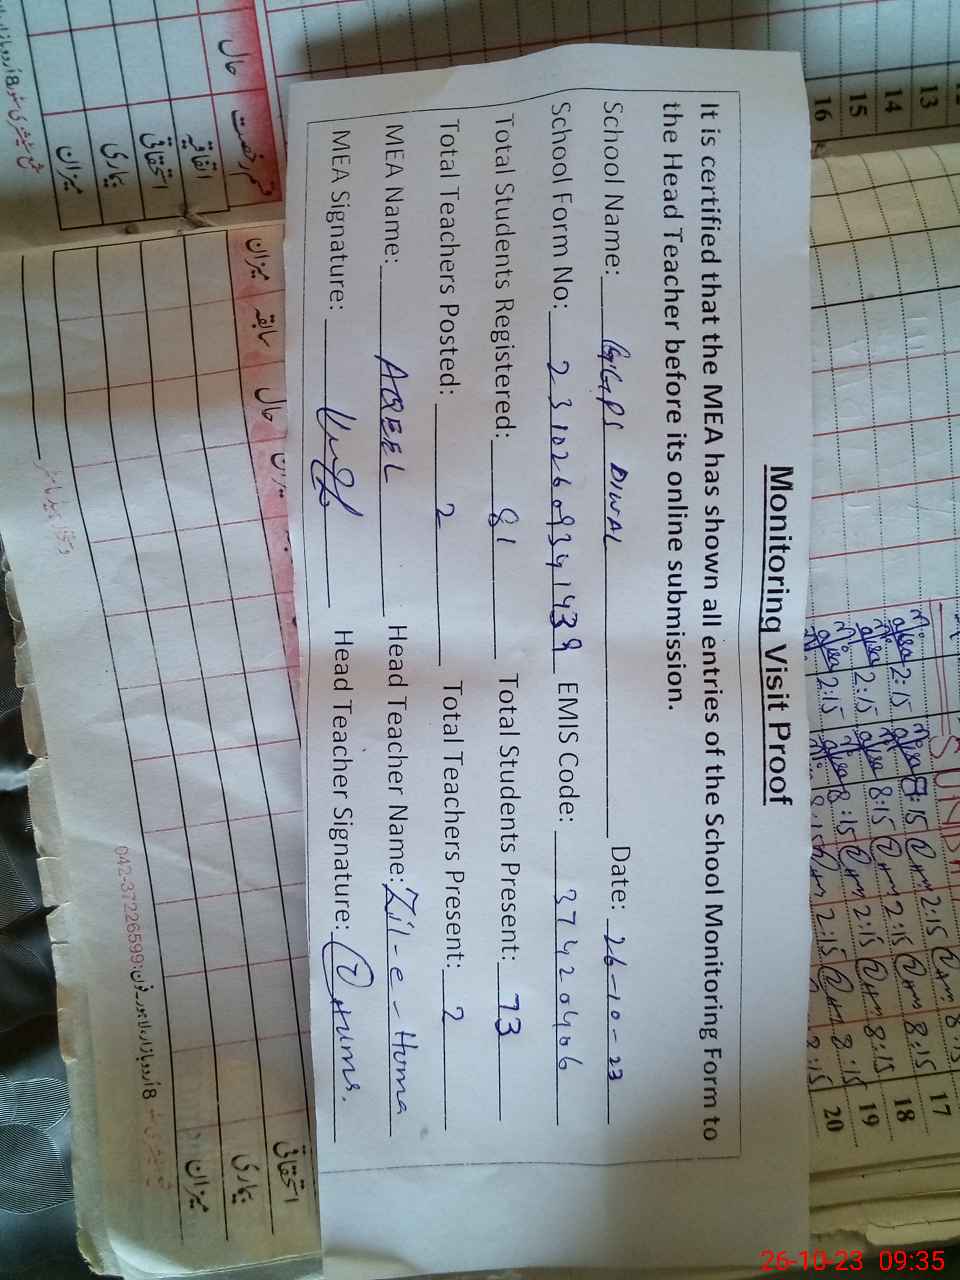 Monitoring Visit Proof
It is certified that the MEA has shown all entries of the School Monitoring Form to
the Head Teacher before its online submission.
School Name: GGPS DIWAL Date: 26-10-23
School Form No: 23102609341439 EMIS Code: 37420406
Total Students Registered: 81 Total Students Present: 73
Total Teachers Posted: 2 Total Teachers Present: 2
MEA Name: AQEEL Head Teacher Name: Zil-e-Huma
MEA Signature: Head Teacher Signature:
13
14
15
16
17
18
19
20
2:15 8:15 2:15 8:15
2:15 8:15 2:15 8:15
2:15 8:15 2:15 8:15
قسم رخصت حال
اتفاقیہ
استحقاقی
بیماری
میزان
میزان سابقہ حال میزان
استحقاقی
بیماری
میزان
042-37226599
26-10-23 09:35